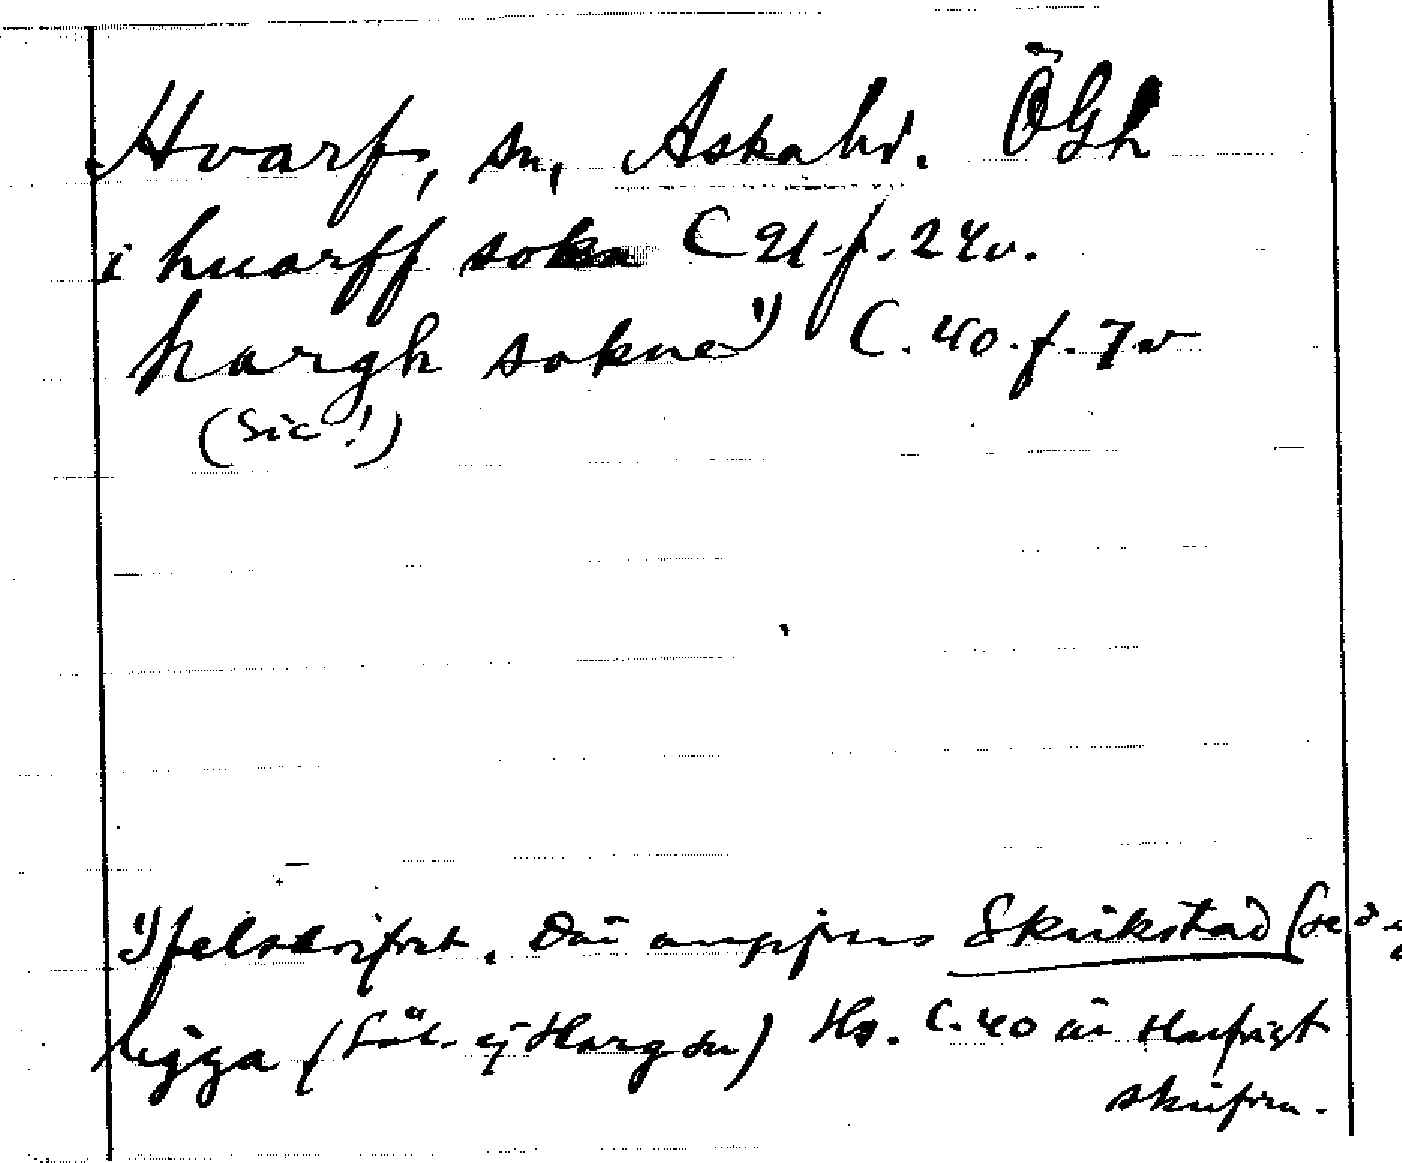 Hvarf, sn, Askahd. ÖGh
i huarff sokn C 21 f. 24v.
hargh sokne 1) C. 40. f. 7v
(Sic!)
1) felskrifvet. Där angifves Skrikstad (se d
ligga ej Harg sn) Hs. C. 40 är slarfvigt
skrifven.